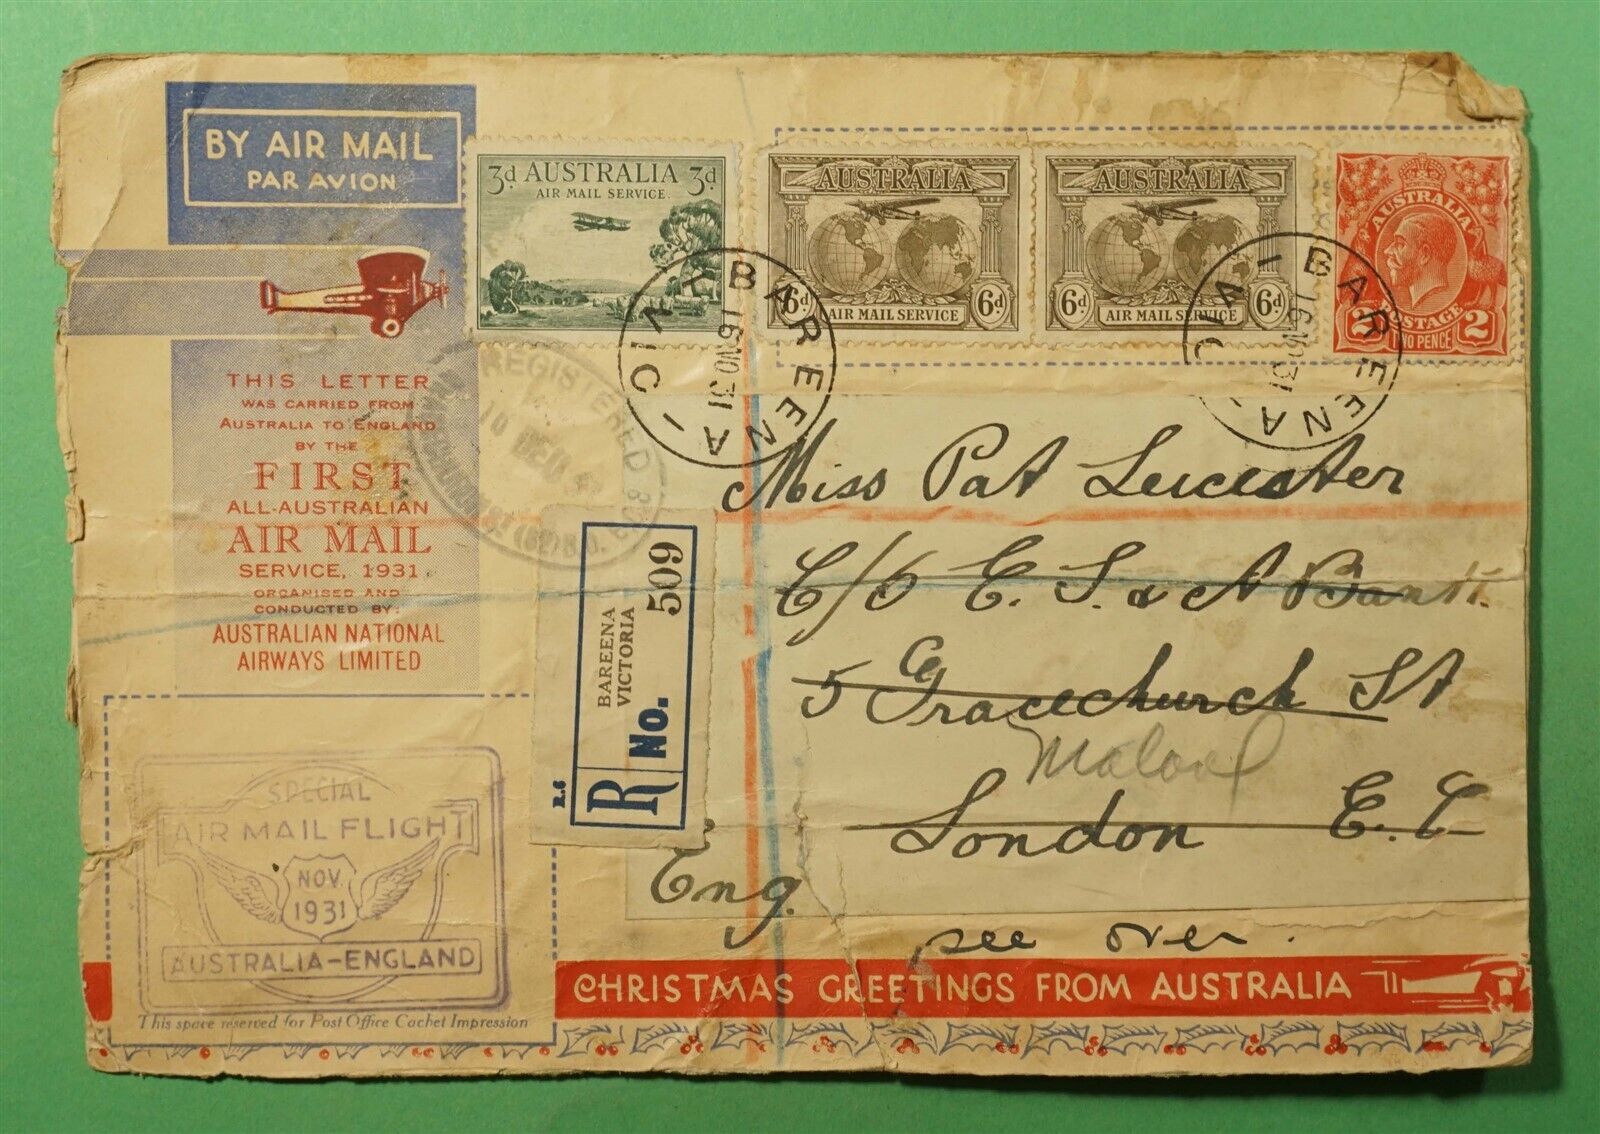 BY AIR MAIL
PAR AVION
THIS LETTER
WAS CARRIED FROM
AUSTRALIA TO ENGLAND
BY THE
FIRST
ALL-AUSTRALIAN
AIR MAIL
SERVICE, 1931
ORGANISED AND
CONDUCTED BY:
AUSTRALIAN NATIONAL
AIRWAYS LIMITED
3d AUSTRALIA 3d
AIR MAIL SERVICE
AUSTRALIA
6d 6d
AIR MAIL SERVICE
AUSTRALIA
6d 6d
AIR MAIL SERVICE
AUSTRALIA
2 POSTAGE 2
TWO PENCE
BAREENA - VICT
16 NO 31
BAREENA - VIC
16 NO 31
REGISTERED
10 DEC
BAREENA
VICTORIA
R No. 509
R.6
Miss Pat Leicester
C/o E. S. & A Bank
5 Gracechurch St
London E. C
Eng.
see over.
SPECIAL
AIR MAIL FLIGHT
NOV.
1931
AUSTRALIA-ENGLAND
This space reserved for Post Office Cachet Impression
CHRISTMAS GREETINGS FROM AUSTRALIA